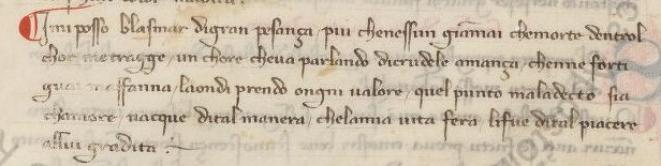 I mi posso blasmar digran pesança piu chenessun giamai chemorte dentrol
chor metragge un chore cheva parlando dicrudele amança chenne forti
guai saffanna laondi prendo ongni ualore quel punto maladecto sia
chamore nacque dital manera chelamia uita fera lifue dital piacere
allui gradita